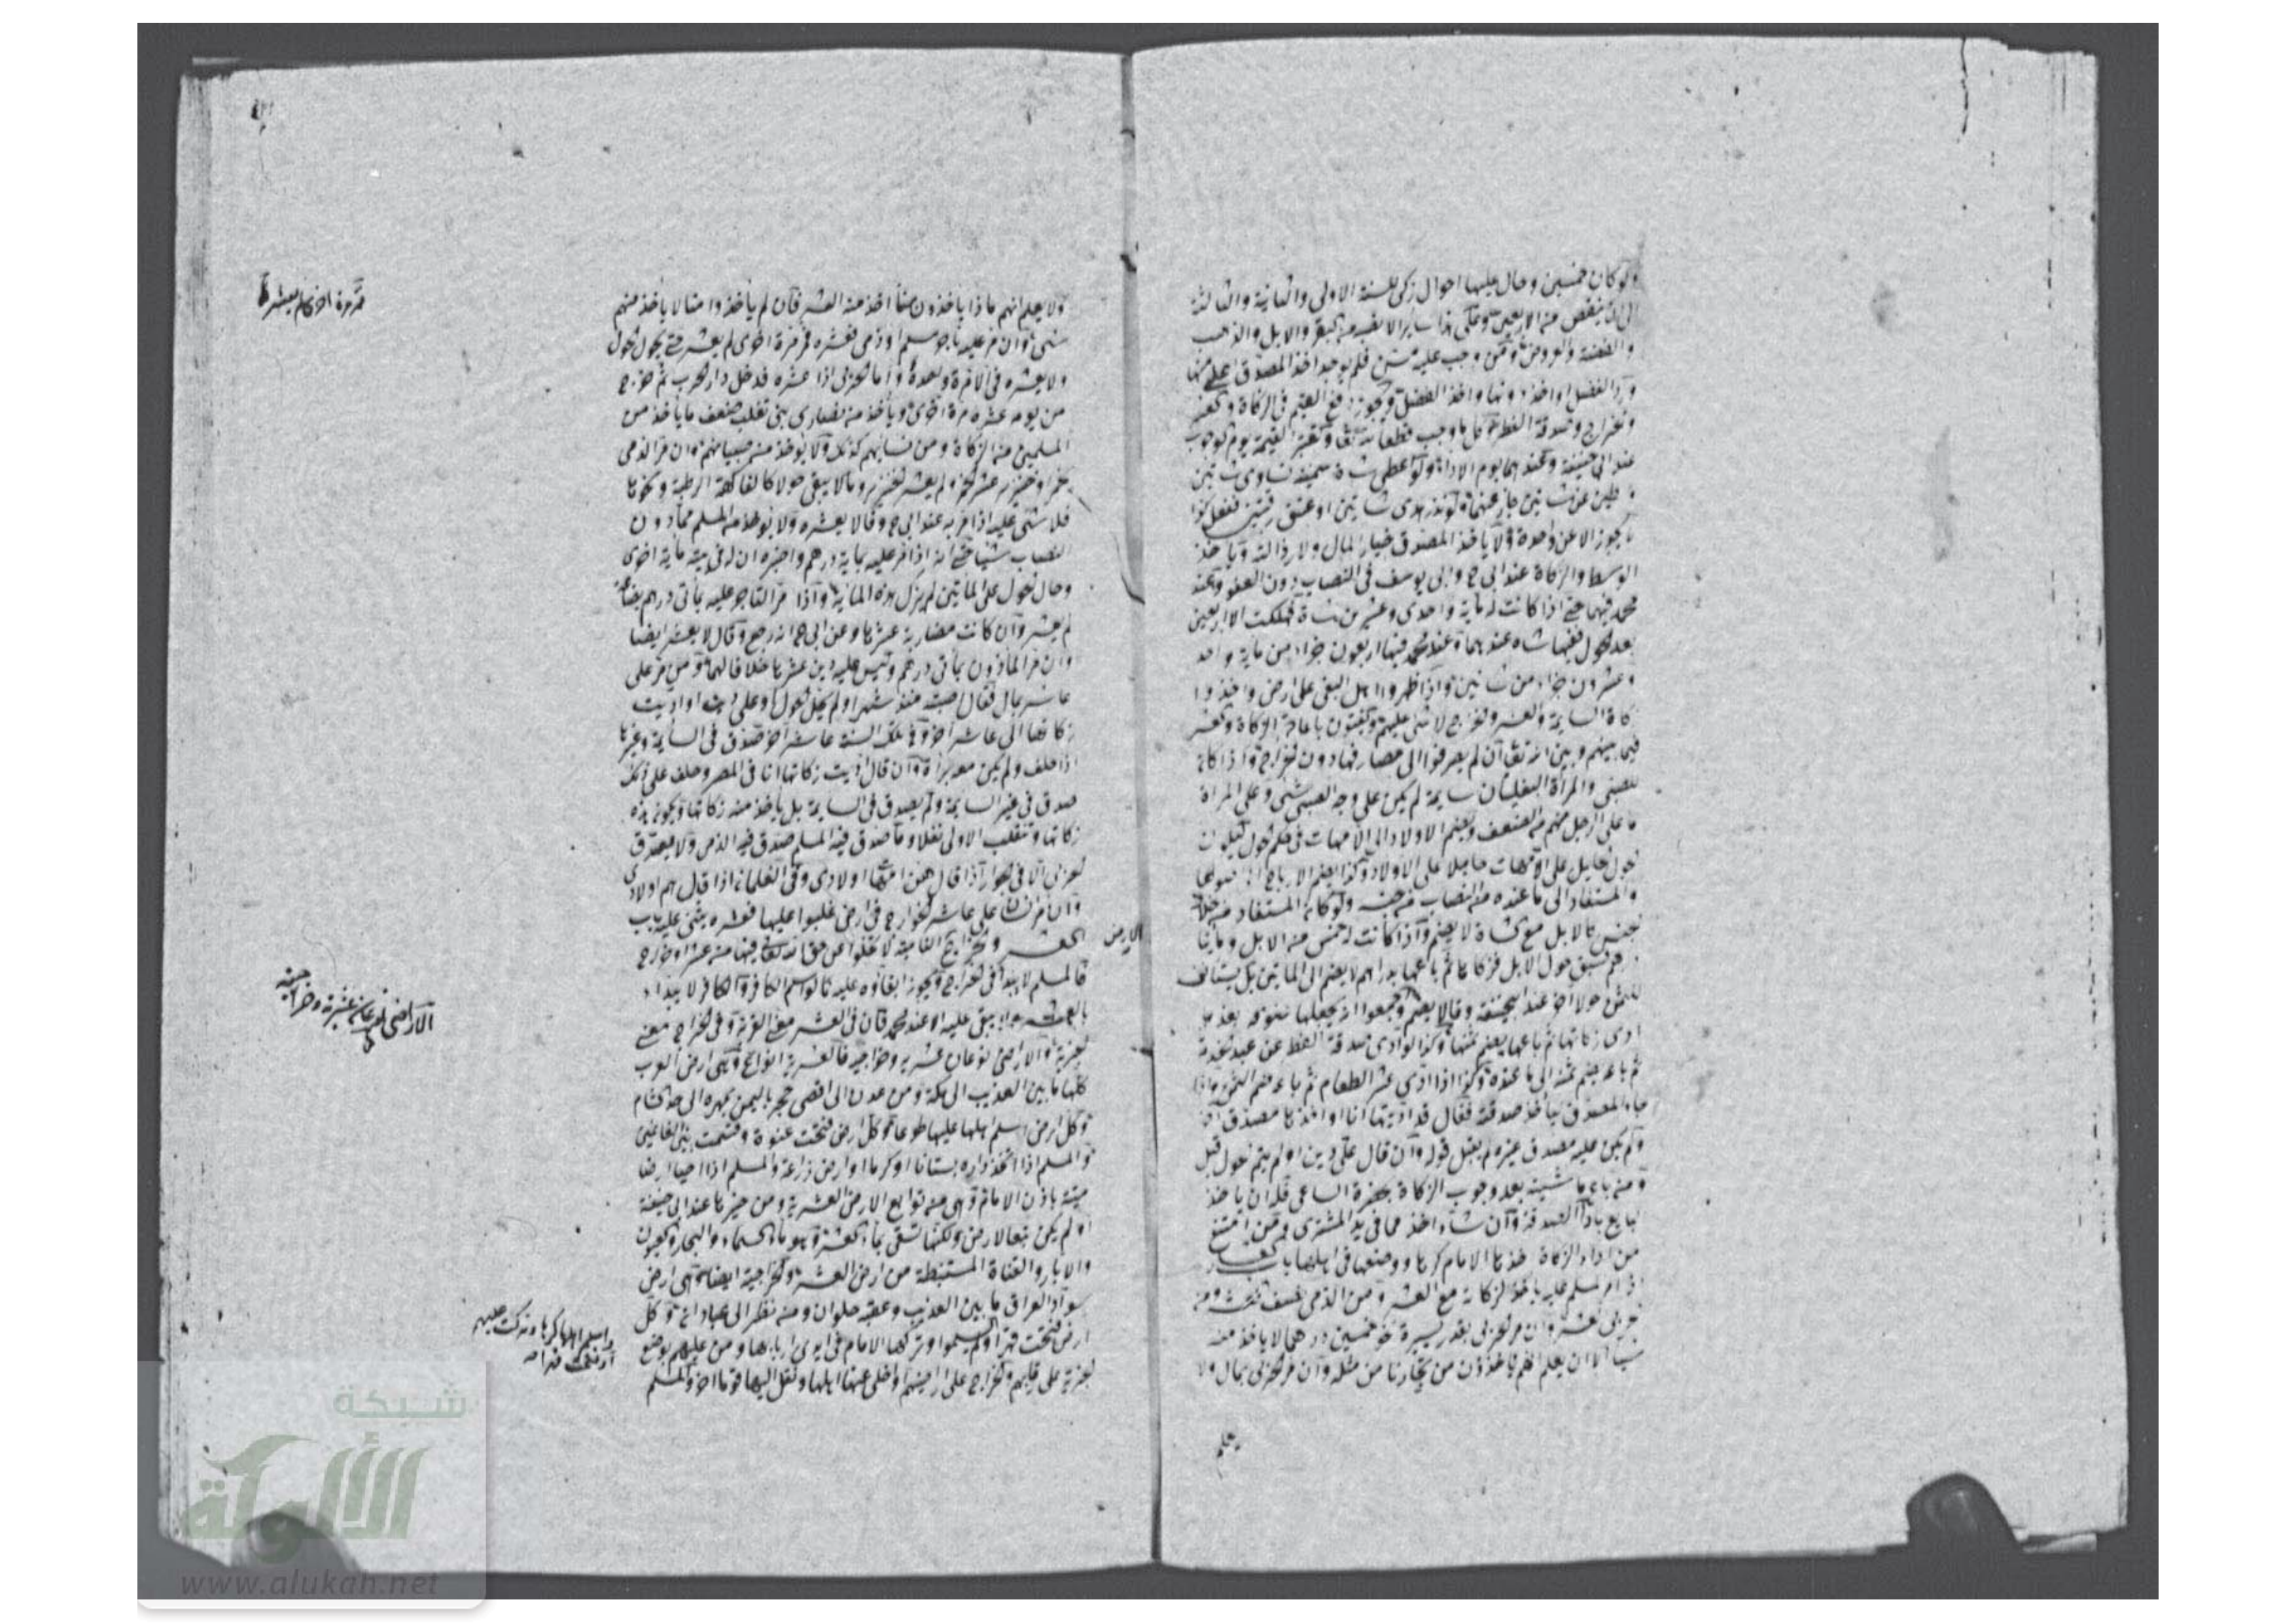 ولو كان خمسين وحال عليها احوال زكى للسنة الاولى والثانية والثالثة
الى ان ينقص من الاربعين وعلى هذا سائر الانصبة من البقر والابل والذهب
والفضة والعروض ومن وجب عليه سن فلم يوجد اخذ المصدق اعلى منها
ورد الفضل او اخذ دونها واخذ الفضل ويجوز دفع القيم في الزكاة والعشر
والخراج وصدقة الفطر وكل ما وجب حقا لله تعا وتعتبر القيمة يوم الوجوب
عند ابي حنيفة وعندهما يوم الاداء ولو اعطى شاة سمينة تساوي شاتين
وسطين عن شاتين جاز عنهما ولو نذر هدي شاتين او عتق رقبتين ففعل كذا
لا يجوز الا عن واحدة ولا ياخذ المصدق خيار المال ولا رذالته وياخذ
الوسط والزكاة عند ابي ح وابي يوسف في النصاب دون العفو وعند
محمد فيهما حتى اذا كانت له ماية واحدى وعشرين شاة فهلكت الا اربعين
بعد الحول ففيها شاه عندهما وعند محمد فيها اربعون جزاء من ماية واحد
وعشرون جزاء من شاتين واذا ظهروا اهل البغي على ارض واخذوا
زكاة السايمة والعشر والخراج لا شئ عليهم ويفتون باعادة الزكاة والعشر
فيما بينهم وبين الله تعا ان لم يصرفوا الى مصارفها دون الخراج واذا كان
للصبي والمراة التغلبيان سايمة لم يكن على وجه الصبي شئ وعلى المراة
ما على الرجل منهم من الضعف ويضم الاولاد الى الامهات في حكم الحول فيكون
الحول الحايل على الامهات حايلا على الاولاد وكذا يضم الارباح الى اصولها
والمستفاد الى ما عنده من النصاب من جنسه ولو كان المستفاد من خلاف
الجنس كالابل مع الشاة لا يضم واذا كانت له خمس من الابل ومايتا
درهم فسبق حول الابل فزكاها ثم باعها بدراهم لا يضم الى الماتين بل يستانف
للثمن حولا اخر عند ابي حنيفة وقالا يضم واجمعوا انه يجعلها علوفة بعد ما
ادى زكاتها ثم باعها يضم ثمنها وكذا لو ادى صدقة الفطر عن عبد الخدمة
ثم باعه يضم ثمنه الى ما عنده وكذا اذا ادى عشر الطعام ثم باعه ضم الثمن واذا
جاء المصدق ياخذ صدقة فقال قد اديتها انا او اخذها مصدق اخر
ولم يكن عليه مصدق غيره لم يقبل قوله وان قال علي دين او لم يتم الحول قبل
ومن باع ماشيته بعد وجوب الزكاة بحضرة الساعي فله ان ياخذ
البايع باداء الصدقة وان شاء اخذ مما في يد المشترى ومن امتنع
من اداء الزكاة اخذها الامام كرها ووضعها في اهلها باب العشار
اذا مر المسلم عليه ياخذ الزكاة مع العشر ومن الذمي نصف العشر ومن
الحربي العشر وان مر الحربي بقدر يسيرة نحو خمسين درهما لا ياخذ منه
شيئا الا ان يعلم انهم ياخذون من تجارنا من مثله وان مر الحربي بمال ولا
يعلم
ولا يعلم انهم ماذا ياخذون منا اخذ منه العشر فان لم ياخذوا منا لا ياخذ منهم
شئ وان مر عليه تاجر مسلم او ذمي فعشره ثم مر مرة اخرى لم يعشر حتى يحول الحول
ولا يعشره في المرة واحدة واما الحربي اذا عشره فدخل دار الحرب ثم خرج
من يومه عشره مرة اخرى وياخذ من نصارى بني تغلب ضعف ما ياخذ من
المسلمين من الزكاة ومن نسائهم كذلك ولا يؤخذ من صبيانهم وان مر الذمي
بخمر او خنزير عشر الخمر ولم يعشر الخنزير وما لا يبقى حولا كالفاكهة الرطبة ونحوها
فلا شئ عليه اذا مر به عند ابي ح وقالا يعشره ولا يؤخذ من المسلم مما دون
النصاب شيئا حتى انه اذا مر عليه بماية درهم واخبره ان له في بيته ماية اخرى
وحال الحول على الماتين لم يزك هذه الماية واذا مر التاجر عليه بماتي درهم بضاعة
لم يعشر وان كانت مضاربة عشرها وعن ابي ح انه رجع وقال لا يعشر ايضا
وان مر الماذون بماتي درهم وليس عليه دين عشرها خلافا لهما ومن مر على
عاشر بمال فقال اصبته منذ شهر او لم يحل الحول او علي دين او اديت
زكاتها الى عاشر اخر وفي تلك السنة عاشر اخر صدق في السايمة وغيرها
اذا حلف ولم يكن معه براة وان قال اديت زكاتها انا في المصر وحلف على ذلك
صدق في غير السايمة ولم يصدق في السايمة بل ياخذ منه زكاتها ويكون هذه
زكاتها وتنقلب الاولى نفلا وما صدق فيه المسلم صدق فيه الذمي ولا يصدق
الحربي الا في الجوار اذا قال هن امهات اولادي وفي الغلمان اذا قال هم اولادي
وان مر التاجر على عاشر الخوارج في ارض غلبوا عليها فعشره يثنى عليه باب
العشر والخراج الارض النامية لا تخلوا عن حق الله تعالى فيها من عشر او خراج
فالمسلم لا يبدأ في الخراج ويجوز ابقاؤه عليه كما لو اسلم الكافر والكافر لا يبداء
بالعشر ولا يبقى عليه الا عند محمد فان في العشر معنى القربة وفي الخراج معنى
الجزية والاراضي نوعان عشرية وخراجية فالعشرية انواع وهي ارض العرب
كلها ما بين العذيب الى مكة ومن عدن الى اقصى حجر باليمن بمهرة الى حد الشام
وكل ارض اسلم اهلها عليها طوعا وكل ارض فتحت عنوة وقسمت بين الغانمين
والمسلم اذا اتخذ داره بستانا او كرما او ارض زراعة والمسلم اذا احيا ارضا
ميتة باذن الامام وهي من توابع الارض العشرية ومن حيزها عند ابي حنيفة
او لم يكن تبعا لارض ولكنها تسقى بماء العشر وهو ماء السماء والبحار والعيون
والابار والقناة المستنبطة من ارض العشر والخراجية ايضا وهي ارض
سواد العراق ما بين العذيب وعقبة حلوان ومن نظر الى عبادان وكل
ارض فتحت قهرا ولم يسلموا وتركها الامام في ايدي اربابها ومن عليهم بوضع
الجزية على رقابهم والخراج على اراضيهم او اخلى عنها اهلها ونقل اليها قوما اخر والمسلم
الاراضي نوعان عشرية وخراجية
شبكة
الألوكة
www.alukah.net